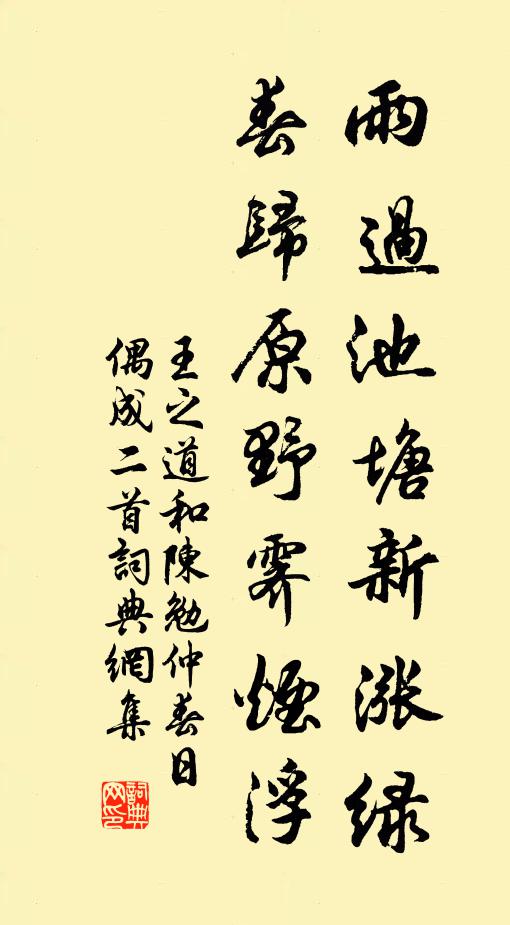 雨過池塘新漲綠
春歸原野霽煙浮
王之道和陳勉仲春日
偶成二首詞典網集
詞典
网印